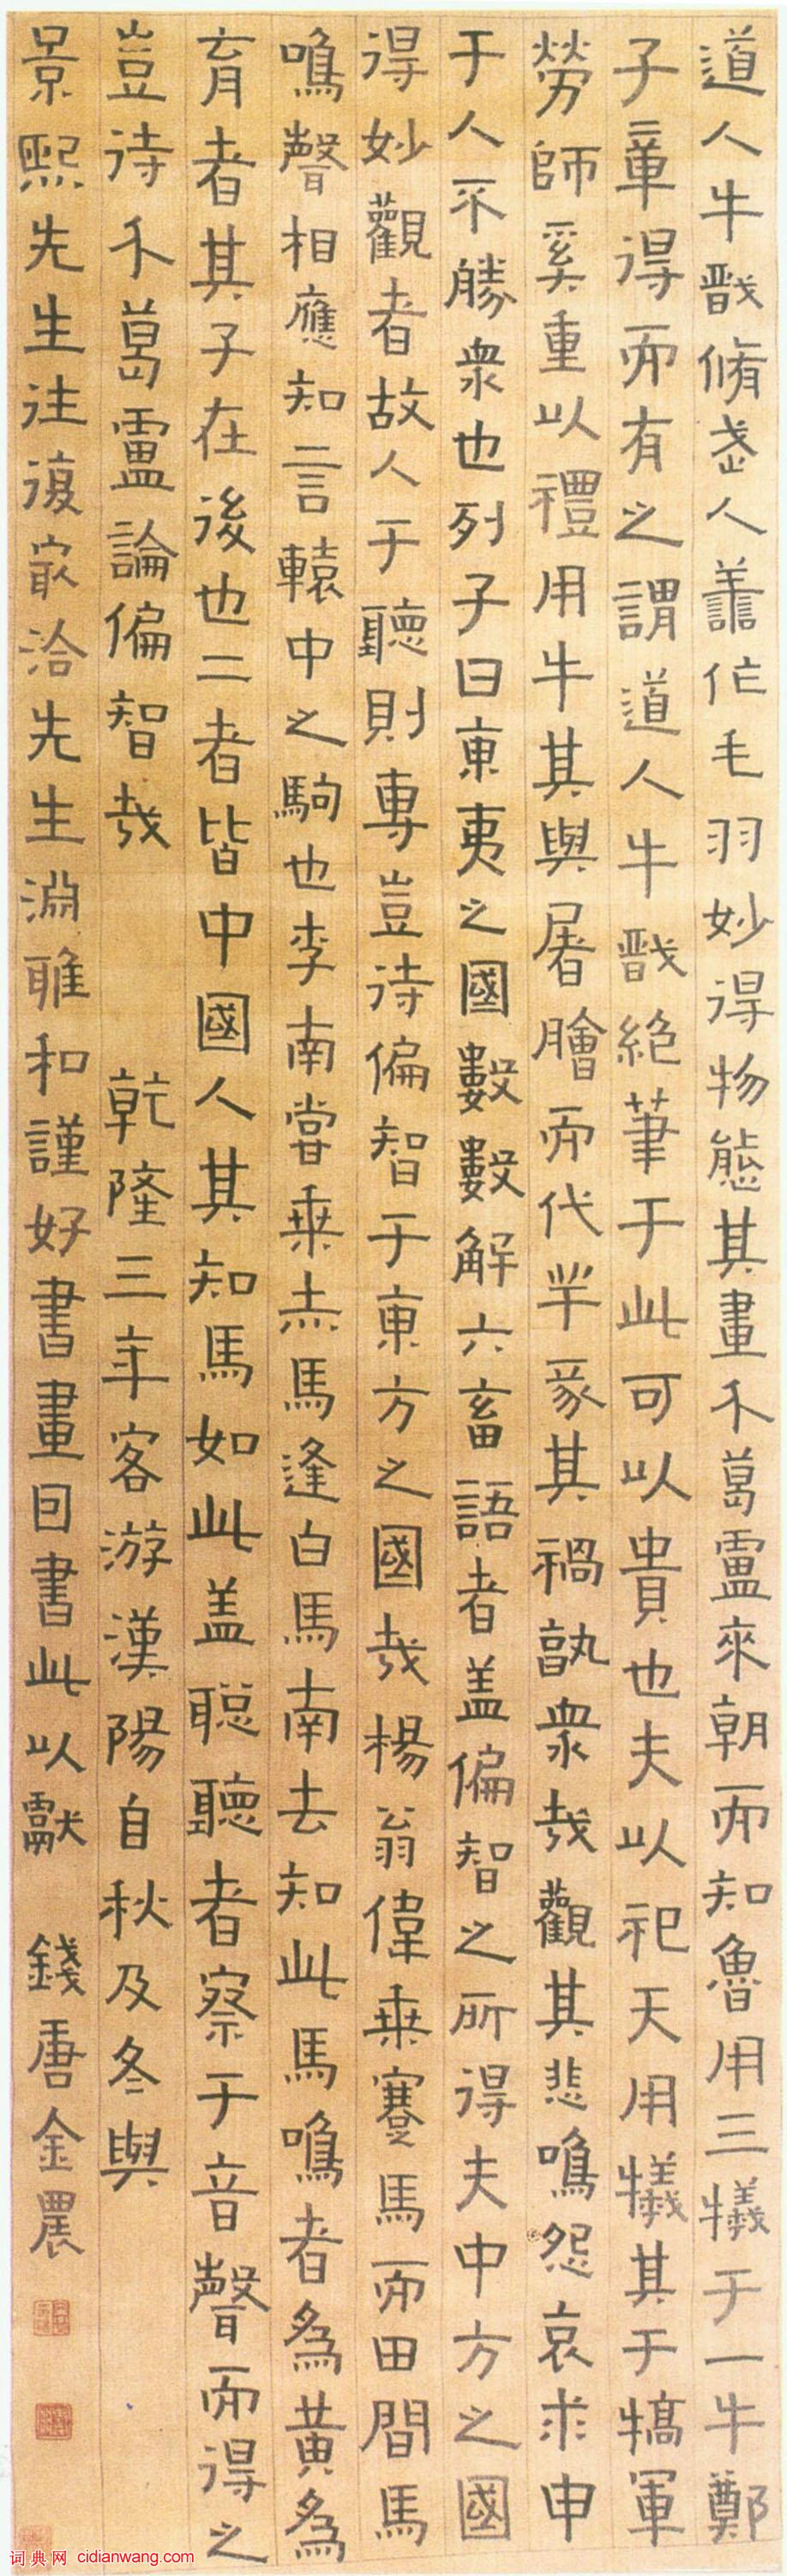 道人牛戩脩盏人善作毛羽妙得物態其畫介葛盧來朝而知魯用三犧于一牛鄭
子章得而有之謂道人牛戩絶筆于此可以貴也夫以祀天用犧其于犒軍
勞師奚重以禮用牛其與屠膾而代羊豕其禍孰衆哉觀其悲鳴怨哀求申
于人不勝衆也列子曰東夷之國數數解六畜語者盖偏智之所得夫中方之國
得妙觀者故人于聽則專豈待偏智于東方之國哉楊翁偉乗蹇馬而田間馬
鳴聲相應知言轅中之駒也李南嘗乗赤馬逢白馬南去知此馬鳴者爲黄爲
育者其子在後也二者皆中國人其知馬如此盖聡聽者察于音聲而得之
豈待介葛盧論偏智哉 乾隆三年客游漢陽自秋及冬與
景熙先生往復寂洽先生淵雅和謹好書畫回書此以獻 錢唐金農
词典网 cidianwang.com